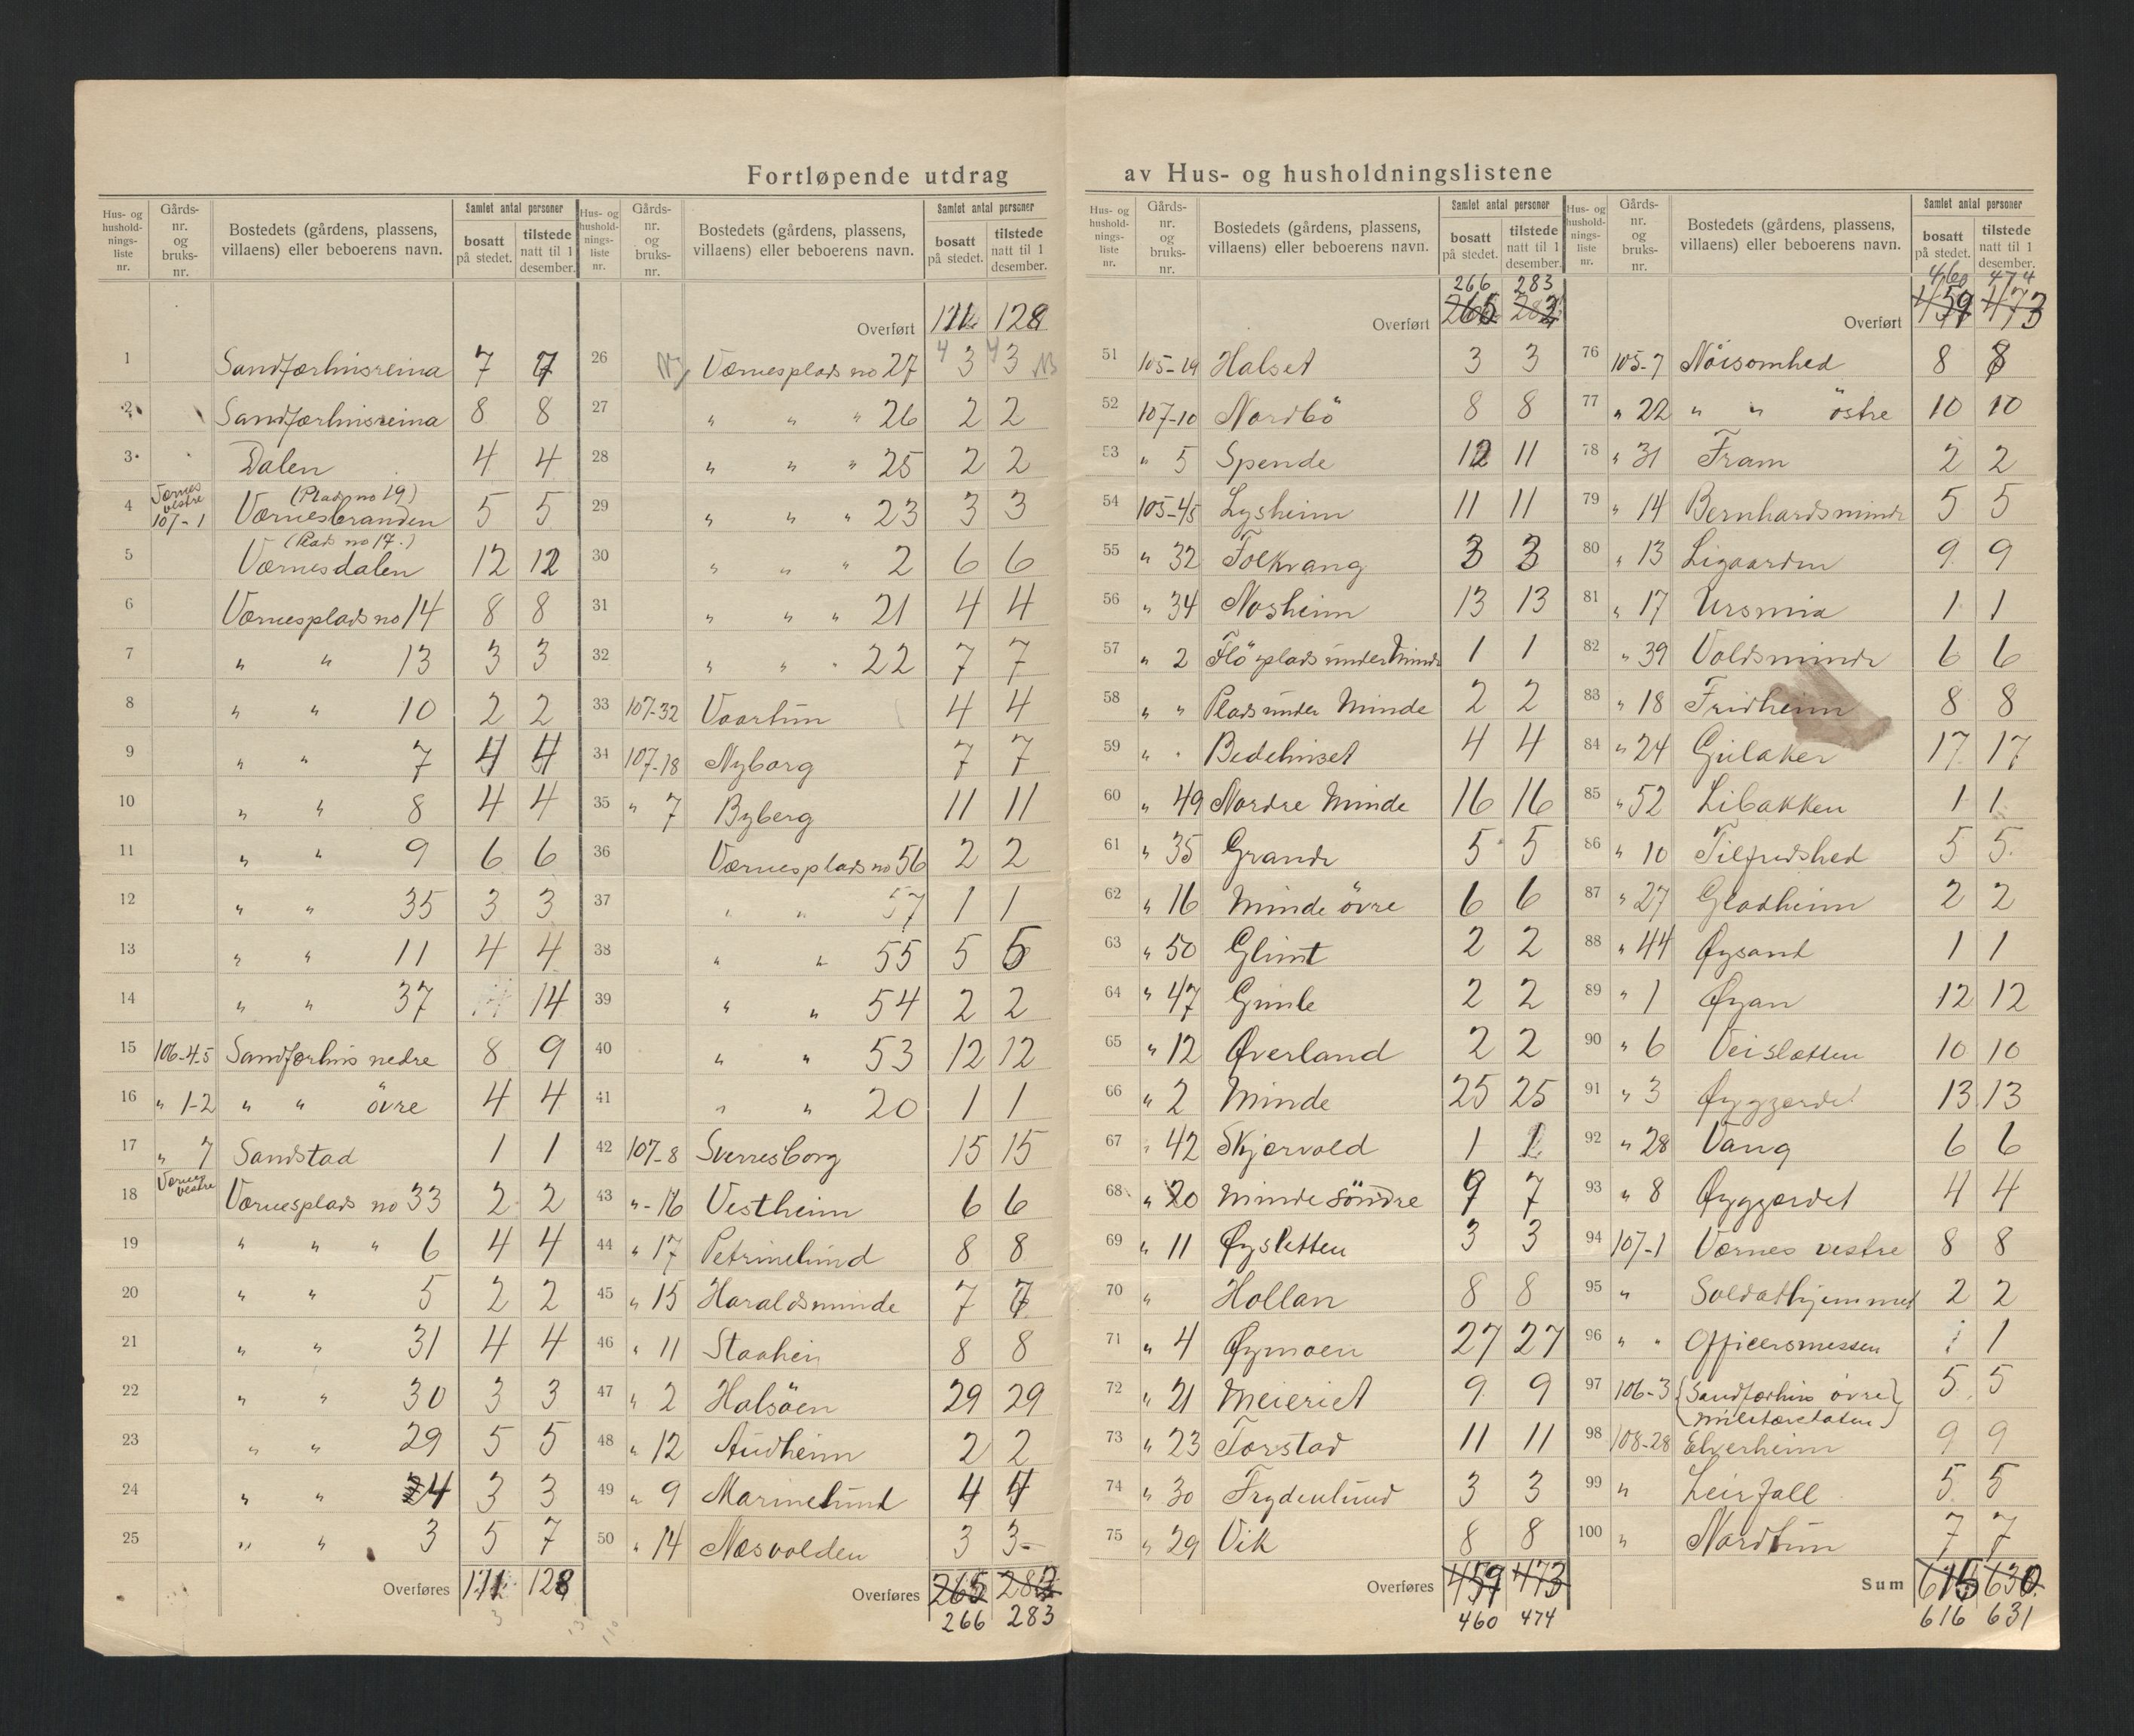 Fortløpende utdrag av Hus- og husholdningslistene
Hus- og hushold-nings-liste nr. | Gårds-nr. og bruks-nr. | Bostedets (gårdens, plassens, villaens) eller beboerens navn. | Samlet antal personer | bosatt på stedet. | tilstede natt til 1 desember.
1 Sandfærhusreina 7 7
2 Sandfærhusreina 8 8
3 Dalen 4 4
4 Værnes vestre 107-1 (Plads no 19) Værnesbranden 5 5
5 (Plads no 17.) Værnesdalen 12 12
6 Værnesplads no 14 8 8
7 " " 13 3 3
8 " " 10 2 2
9 " " 7 4 4
10 " " 8 4 4
11 " " 9 6 6
12 " " 35 3 3
13 " " 11 4 4
14 " " 37 14
15 106-4-5 Sandfærhus nedre 8 9
16 " 1-2 " " övre 4 4
17 " 7 Sandstad 1 1
18 Værnes vestre Værnesplads no 33 2 2
19 " " " 6 4 4
20 " " 5 2 2
21 " " 31 4 4
22 " " 30 3 3
23 " " 29 5 5
24 " " 4 3 3
25 " " 3 5 7
Overføres 128
Hus- og hushold-nings-liste nr. | Gårds-nr. og bruks-nr. | Bostedets (gårdens, plassens, villaens) eller beboerens navn. | Samlet antal personer | bosatt på stedet. | tilstede natt til 1 desember.
Overført 128
26 Værnesplads no 27 4 3 4 3
27 " " " 26 2 2
28 " " " 25 2 2
29 " " " 23 3 3
30 " " " 2 6 6
31 " " " 21 4 4
32 " " " 22 7 7
33 107-32 Vaartun 4 4
34 107-18 Nyborg 7 7
35 " 7 Byberg 11 11
36 Værnesplads no 56 2 2
37 " " 57 1 1
38 " " 55 5 5
39 " " 54 2 2
40 " " 53 12 12
41 " " 20 1 1
42 107-8 Sverresborg 15 15
43 "-16 Vestheim 6 6
44 " 17 Petrinelund 8 8
45 " 15 Haraldsminde 7 7
46 " 11 8 8
47 " 2 Halsöen 29 29
48 " 12 Audheim 2 2
49 " 9 Marinelund 4 4
50 " 14 Næsvolden 3 3-
Overføres 265 282
266 283
Hus- og hushold-nings-liste nr. | Gårds-nr. og bruks-nr. | Bostedets (gårdens, plassens, villaens) eller beboerens navn. | Samlet antal personer | bosatt på stedet. | tilstede natt til 1 desember.
266 283
Overført 265 282
51 105-19 Halset 3 3
52 107-10 Nordbö 8 8
53 " 5 Spende 12 11
54 105-45 Lysheim 11 11
55 " 32 Folkvang 3 3
56 " 34 Nosheim 13 13
57 " 2 plads under Minde 1 1
58 " " Plads under Minde 2 2
59 " " Bedehuset 4 4
60 " 49 Nordre Minde 16 16
61 " 35 Grande 5 5
62 " 16 Minde övre 6 6
63 " 50 Glimt 2 2
64 " 47 Gimle 2 2
65 " 12 Øverland 2 2
66 " 2 Minde 25 25
67 " 42 Skjervold 1 1
68 " 20 Minde söndre 9 7
69 " 11 Øysletten 3 3
70 " Hollan 8 8
71 " 4 Øymoen 27 27
72 " 21 Meieriet 9 9
73 " 23 Torstad 11 11
74 " 30 Frydenlund 3 3
75 " 29 Vik 8 8
Overføres 459 473
460 474
Hus- og hushold-nings-liste nr. | Gårds-nr. og bruks-nr. | Bostedets (gårdens, plassens, villaens) eller beboerens navn. | Samlet antal personer | bosatt på stedet. | tilstede natt til 1 desember.
460 474
Overført 459 473
76 105-7 Nöisomhed 8 8
77 " 22 " " östre 10 10
78 " 31 Fram 2 2
79 " 14 Bernhardsminde 5 5
80 " 13 Ligaarden 9 9
81 " 17 Ursmia 1 1
82 " 39 Voldsminde 6 6
83 " 18 Fridheim 8 8
84 " 24 Gulaker 17 17
85 " 52 Libakken 1 1
86 " 10 Tilfredshed 5 5
87 " 27 Gladheim 2 2
88 " 44 Øysand 1 1
89 " 1 Øyan 12 12
90 " 6 Veisletten 10 10
91 " 3 Øyggardet 13 13
92 " 28 Vang 6 6
93 " 8 Øyggardet 4 4
94 107-1 Værnes vestre 8 8
95 " Soldathjemmet 2 2
96 " " Officersmessen 1 1
97 106-3 {Sandfærhus övre} 5 5
(militæretaten)
98 108-28 Elverheim 9 9
99 " Leirfall 5 5
100 " Nordtun 7 7
Sum 615 630
616 631